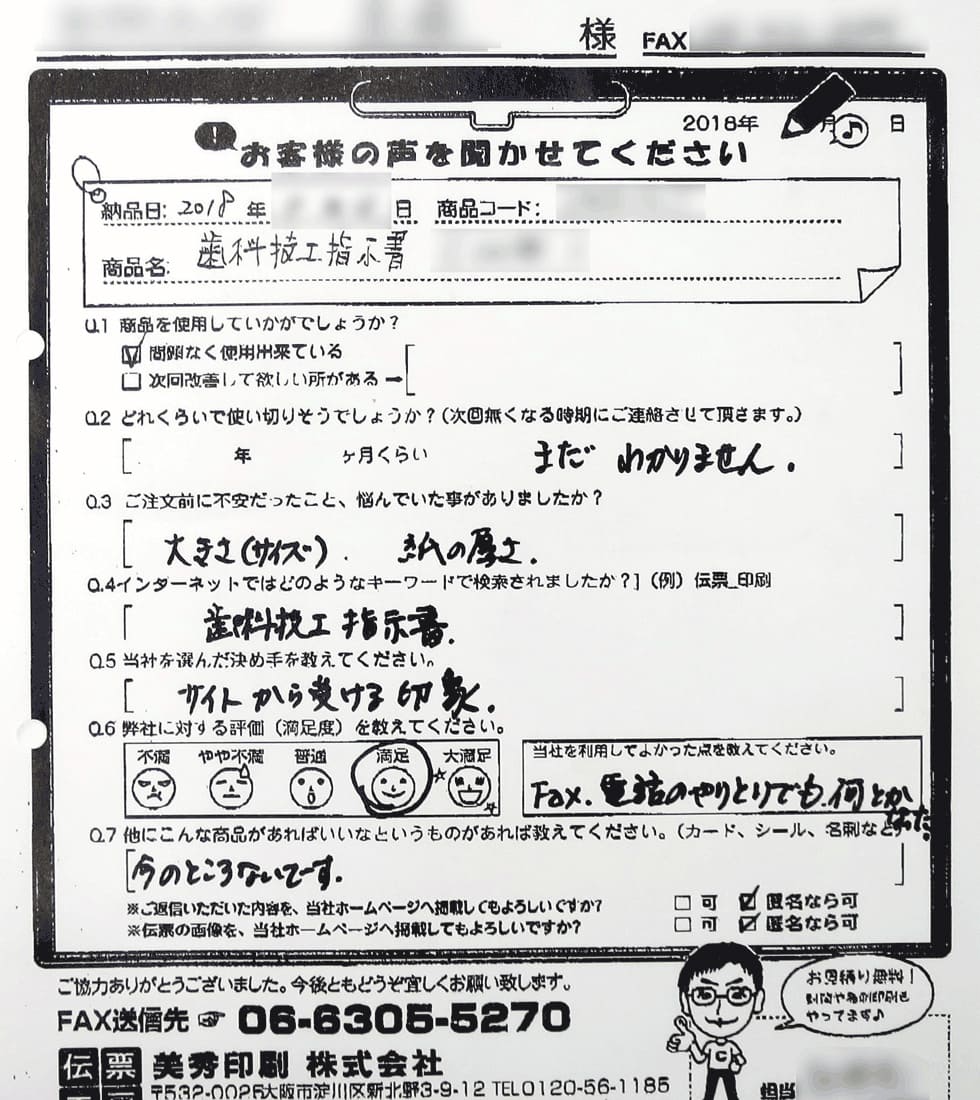 様 FAX
2018年 月 日
お客様の声を聞かせてください
納品日: 2018年 日 商品コード:
商品名: 歯科技工指示書
Q.1 商品を使用していかがでしょうか?
問題なく使用出来ている
次回改善して欲しい所がある
Q.2 どれくらいで使い切りそうでしょうか?(次回無くなる時期にご連絡させて頂きます。)
年 ヶ月くらい まだ わかりません.
Q.3 ご注文前に不安だったこと、悩んでいた事がありましたか?
大きさ(サイズ). 紙の厚さ.
Q.4インターネットではどのようなキーワードで検索されましたか?](例)伝票_印刷
歯科技工指示書.
Q.5 当社を選んだ決め手を教えてください。
サイトから受ける印象.
Q.6 弊社に対する評価(満足度)を教えてください。
不満 やや不満 普通 満足 大満足
当社を利用してよかった点を教えてください。
Fax. 電話のやりとりでも.何とか
なった.
Q.7 他にこんな商品があればいいなというものがあれば教えてください。(カード、シール、名刺など)
今のところないでーす.
※ご返信いただいた内容を、当社ホームページへ掲載してもよろしいですか? 可 匿名なら可
※伝票の画像を、当社ホームページへ掲載してもよろしいですか? 可 匿名なら可
ご協力ありがとうございました。今後ともどうぞ宜しくお願い致します。
お見積り無料!
やってます♪
FAX送信先 ☞ 06-6305-5270
伝票 美秀印刷 株式会社
〒532-0025大阪市淀川区新北野3-9-12 TEL0120-56-1185
担当